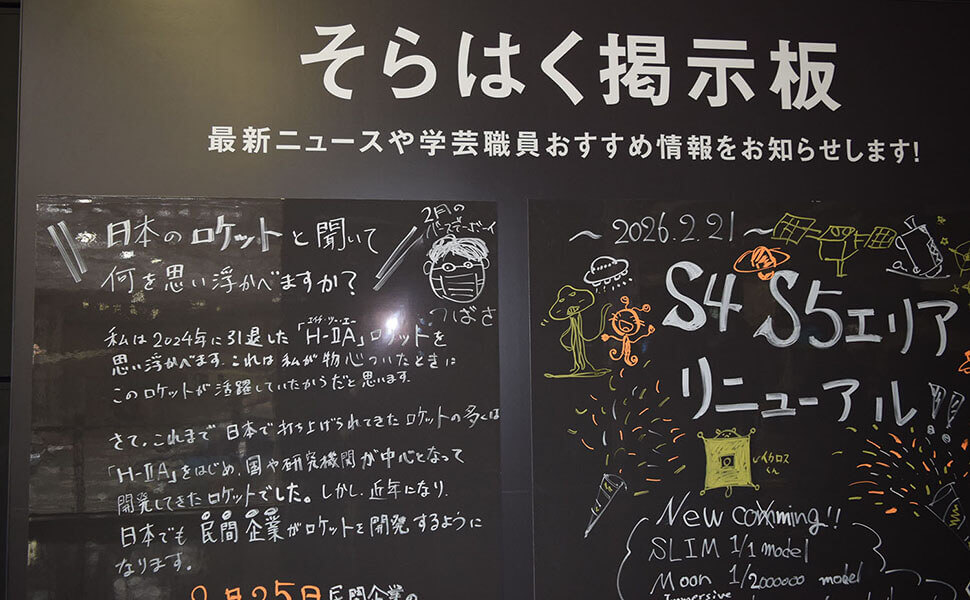 そらはく掲示板
最新ニュースや学芸職員おすすめ情報をお知らせします!
日本のロケットと聞いて
何を思い浮かべますか?
2月の
ボースでーボーイ
つばさ
私は2024年に引退した「H-ⅡA」ロケットを
エイチ・ツー・エー
思い浮かべます。これは私が物心ついたときに
このロケットが活躍していたからだと思います。
さて、これまで日本で打ち上げられてきたロケットの多くは
「H-ⅡA」をはじめ、国や研究機関が中心となって
開発してきたロケットでした。しかし、近年になり、
日本でも民間企業がロケットを開発するように
なります。
2月25日民間企業の
〜2026.2.21〜
S4 S5エリア
リニューアル!!
イカロス
くん
New comming!!
SLIM 1/1 model
Moon 1/2000000 model
Immersive